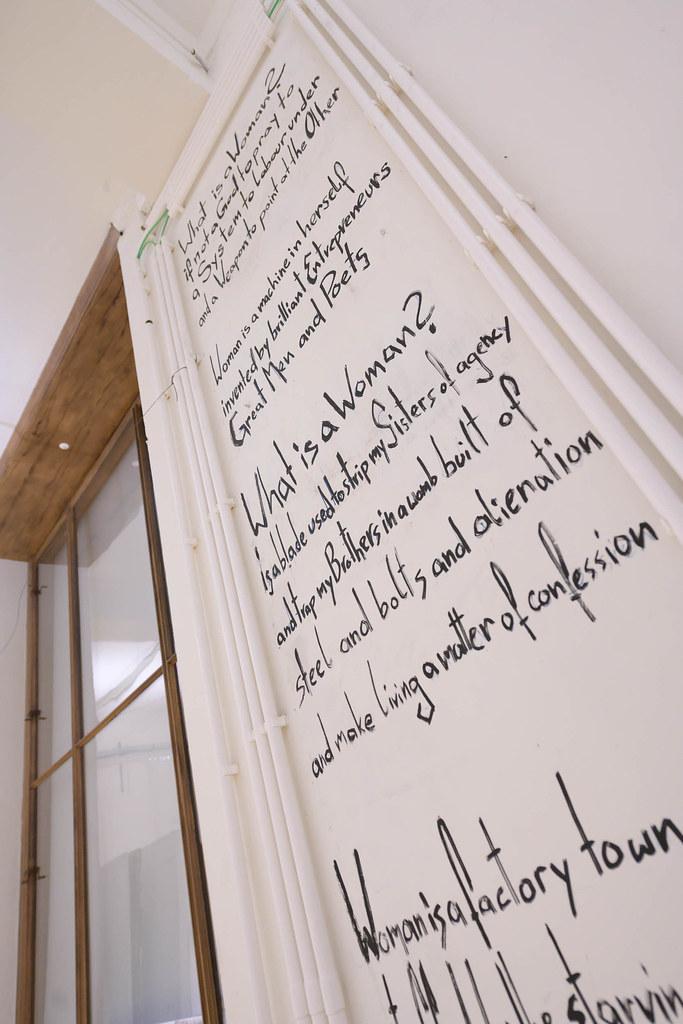 What is a Woman?
if not a God to pray to
a System to Labour under
and a Weapon to point at the Other
Woman is a machine in herself
invented by brilliant Entrepreneurs
Great Men and Poets
What is a Woman?
is a blade used to strip my Sisters of agency
and trap my Brothers in a womb built of
steel and bolts and alienation
and make living a matter of confession
Woman is a factory town
the starvin